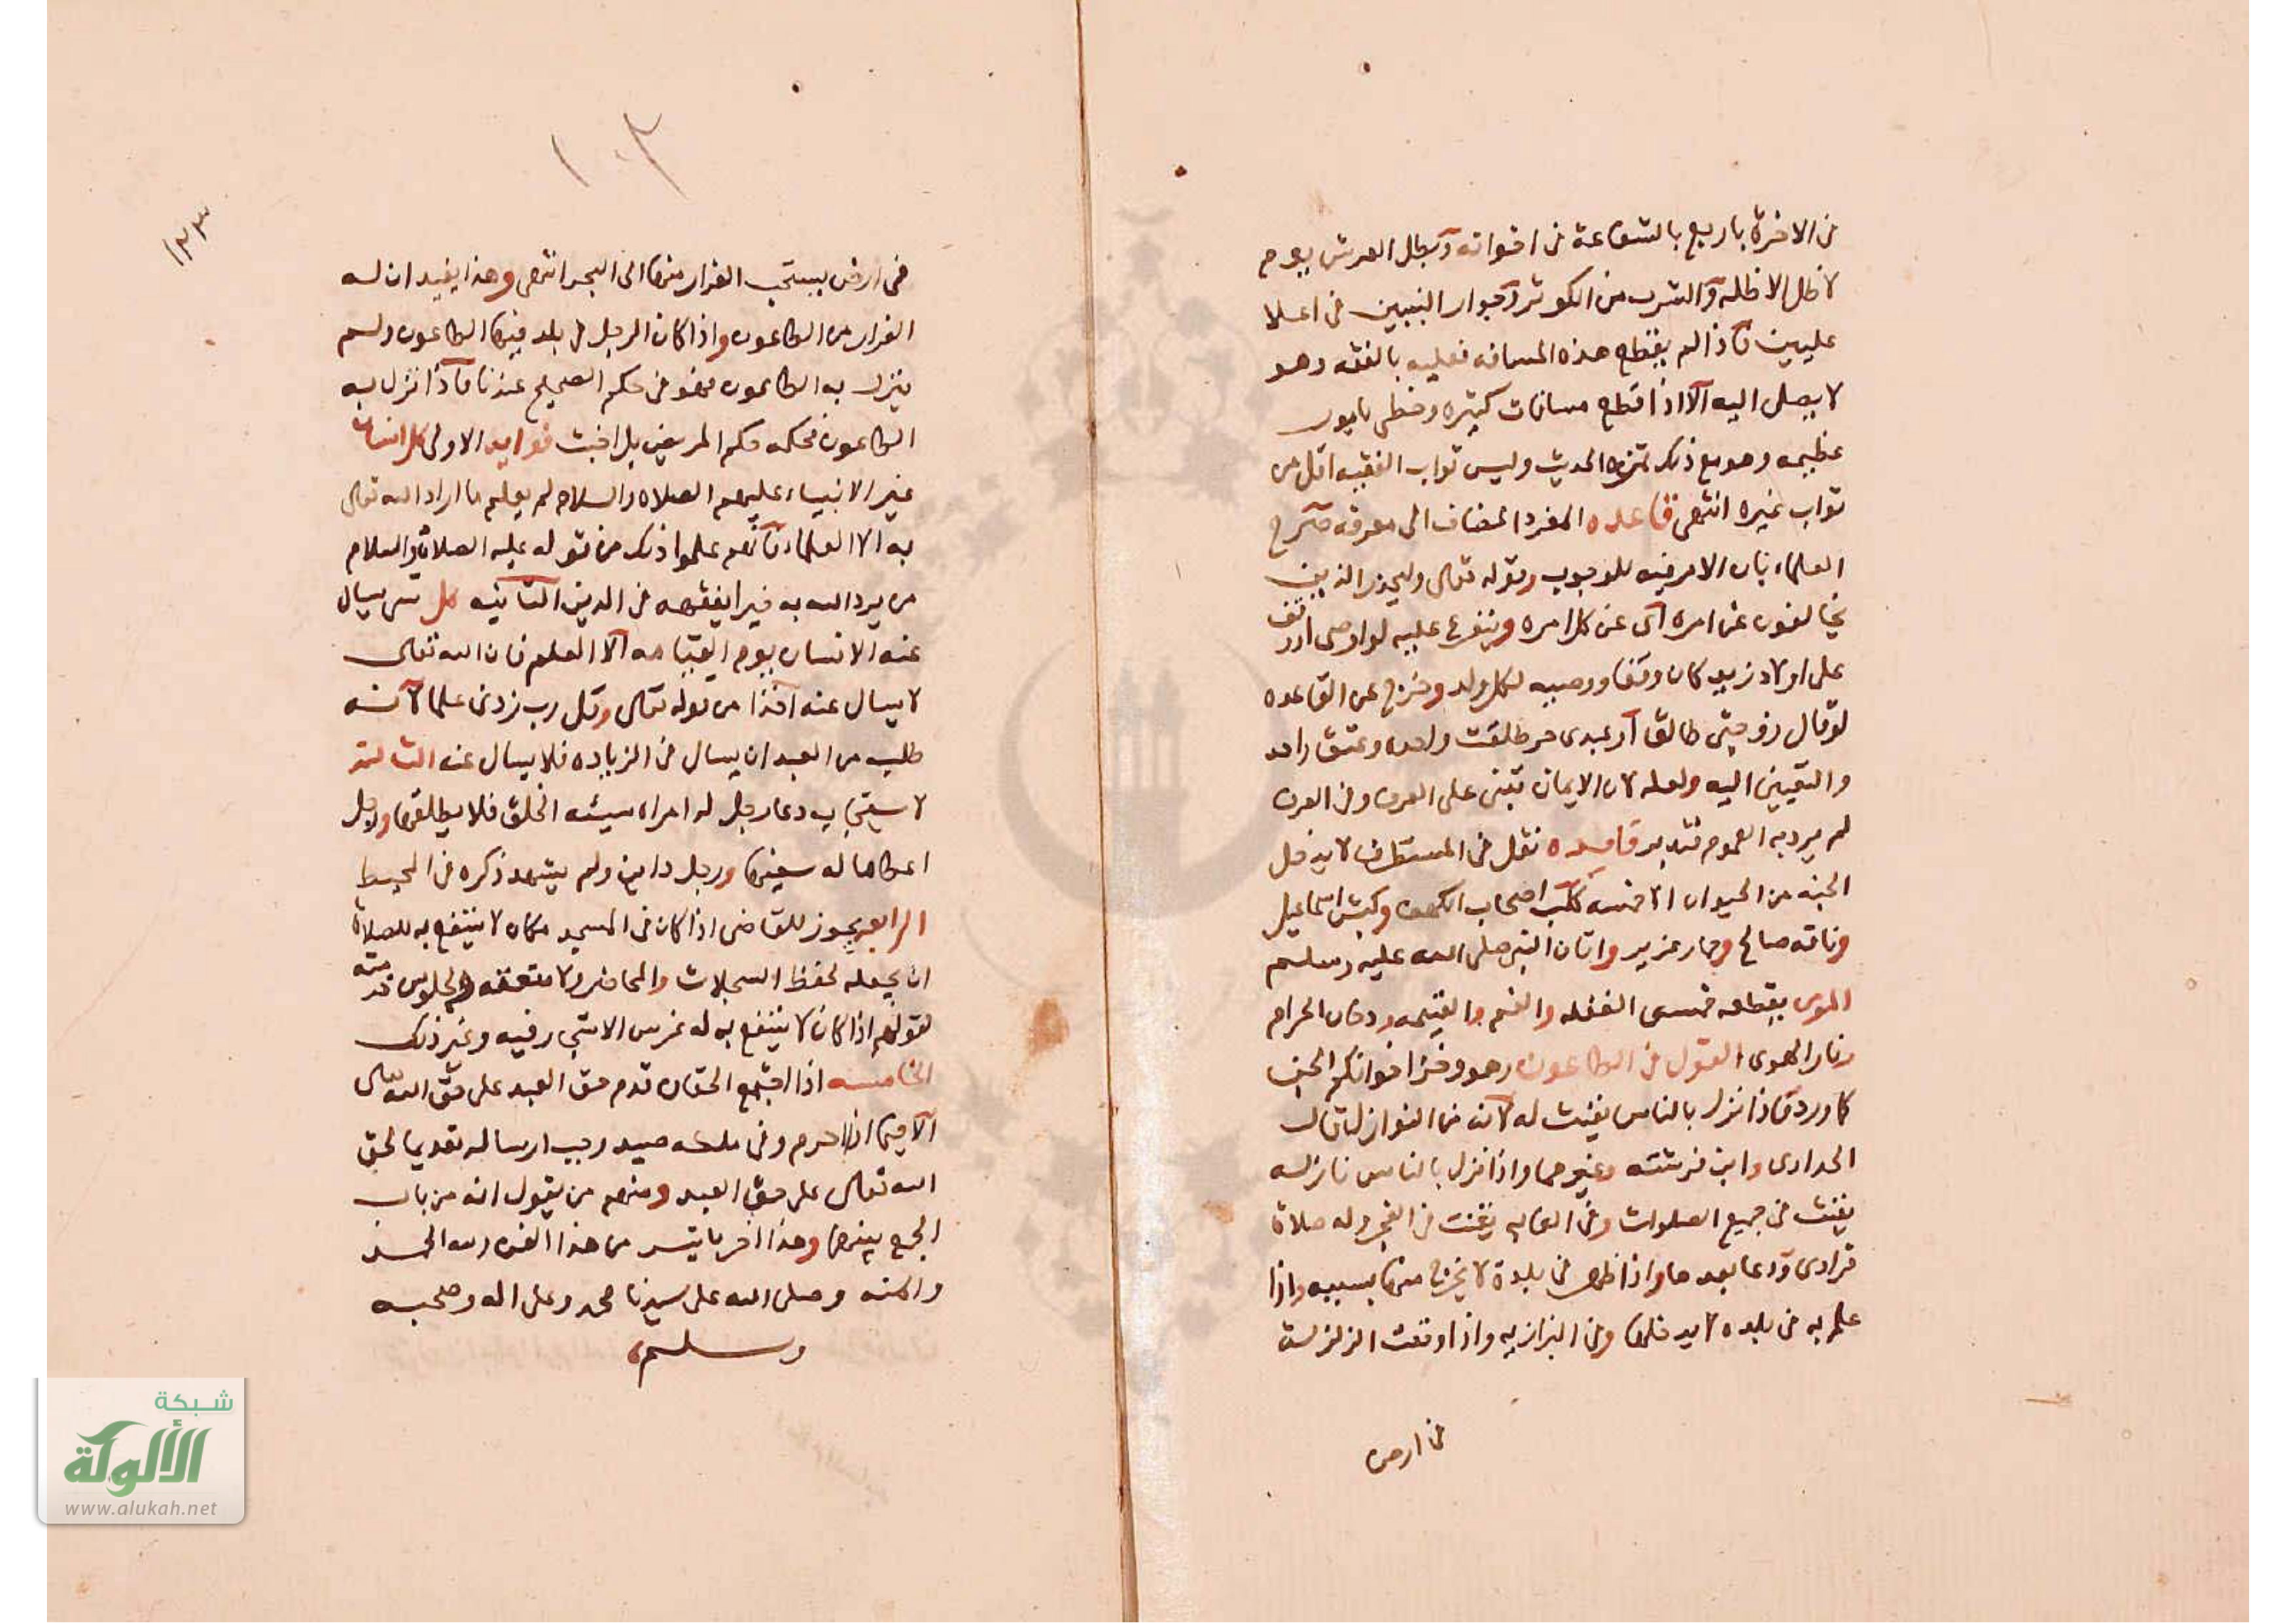 في الاخرة باربع بالشفاعة في اخوانه وبظل العرش يوم
لا ظل الا ظله والشرب من الكوثر وجوار النبيين في اعلا
عليين فاذا لم يقطع هذه المسافه فعليه بالفقه وهو
لا يصل اليه الا اذا قطع مسافات كثيره وخطى بامور
عظيمه وهو مع ذلك ثمره الحديث وليس ثواب الفقيه اقل من
ثواب غيره انتهى قاعده المفرد المضاف الى معرفه صرح
العلماء بان الامر فيه للوجوب وقوله تعالى وليحذر الذين
يخالفون عن امره اى عن كل امره ويتفرع عليه لو اوصى او وقف
على اولاد زيد كان وقفا ووصيه لكل ولد وخرج عن القاعده
لو قال زوجتى طالق او عبدى حر طلقت واحده وعتق واحد
والتعيين اليه ولعله لان الايمان تبنى على العرف وفى العرف
لم يرد به العموم فتدبر فايده نقل فى المستطرف لا يدخل
الجنه من الحيوان الا خمسه كلب اصحاب الكهف وكبش اسماعيل
وناقه صالح وحمار عزير واتان النبى صلى الله عليه وسلم
المومن بقطعه خمسى الغفله والغم والغيمه ودخان الحرام
ونار الهوى القول فى الطاعون وهو وخز اخوانكم الجن
كما ورد فاذا نزل بالناس يقنت له لانه من النوازل قال
الحدادى وابن فرشته وغيرهما واذا نزل بالناس نازله
يقنت فى جميع الصلوات وفى الغايه يقنت فى الفجر وله صلاة
فرادى ودعا بعدها واذا ظهر فى بلدة لا يخرج منها بسببه واذا
علم به فى بلده لا يدخلها وفى البزازيه واذا وقعت الزلزلة
فى ارض
١٠٣
١٢٣
فى ارض يستحب الفرار منها الى البحر انتهى وهذا يفيد ان له
الفرار من الطاعون واذا كان الرجل فى بلد فيها الطاعون ولم
ينزل به الطاعون فهو فى حكم الصحيح عندنا فاذا نزل به
الطاعون فحكمه حكم المريض بل اخبث فوايد الاولى كل انسان
غير الانبياء عليهم الصلاه والسلام لم يعلم ما اراد الله تعالى
به الا العلماء فانهم علموا ذلك من قوله عليه الصلاة والسلام
من يرد الله به خيرا يفقهه فى الدين الثانيه كل شى يسال
عنه الانسان يوم القيامه الا العلم فان الله تعالى
لا يسال عنه اخذا من قوله تعالى وقل رب زدنى علما لانه
طلب من العبد ان يسال فى الزياده فلا يسال عنه الثالثه
لا يستجاب دعا رجل له امراه سيئه الخلق فلا يطلقها ورجل
اعطا ماله سفيها ورجل داين ولم يشهد ذكره فى المحيط
الرابعه يجوز للقاضى اذا كان فى المسجد مكان لا ينتفع به للصلاة
ان يجعله لحفظ السجلات والمحاضر ولا متعقه الجلوس قدمته
لقولهم اذا كان لا ينتفع به له غرس الاشجار فيه وغير ذلك
الخامسه اذا اجتمع الحقان قدم حق العبد على حق الله تعالى
الا فيما اذا احرم وفى ملكه صيد وجب ارساله تقديما لحق
الله تعالى على حق العبد ومنهم من يقول انه من باب
الجمع بينهما وهذا اخر ما تيسر من هذا الفن ولله الحمد
والمنه وصلى الله على سيدنا محمد وعلى اله وصحبه
وسلم
شبكة
الألوكة
www.alukah.net